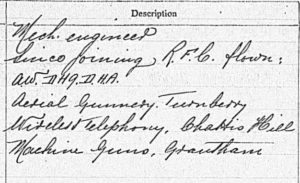 Description
Mech. engineer
Since joining R.F.C. flown:
AW. DH9. DHA.
Aerial Gunnery. Turnberry
Wireless telephony, Chattis Hill
Machine Guns, Grantham